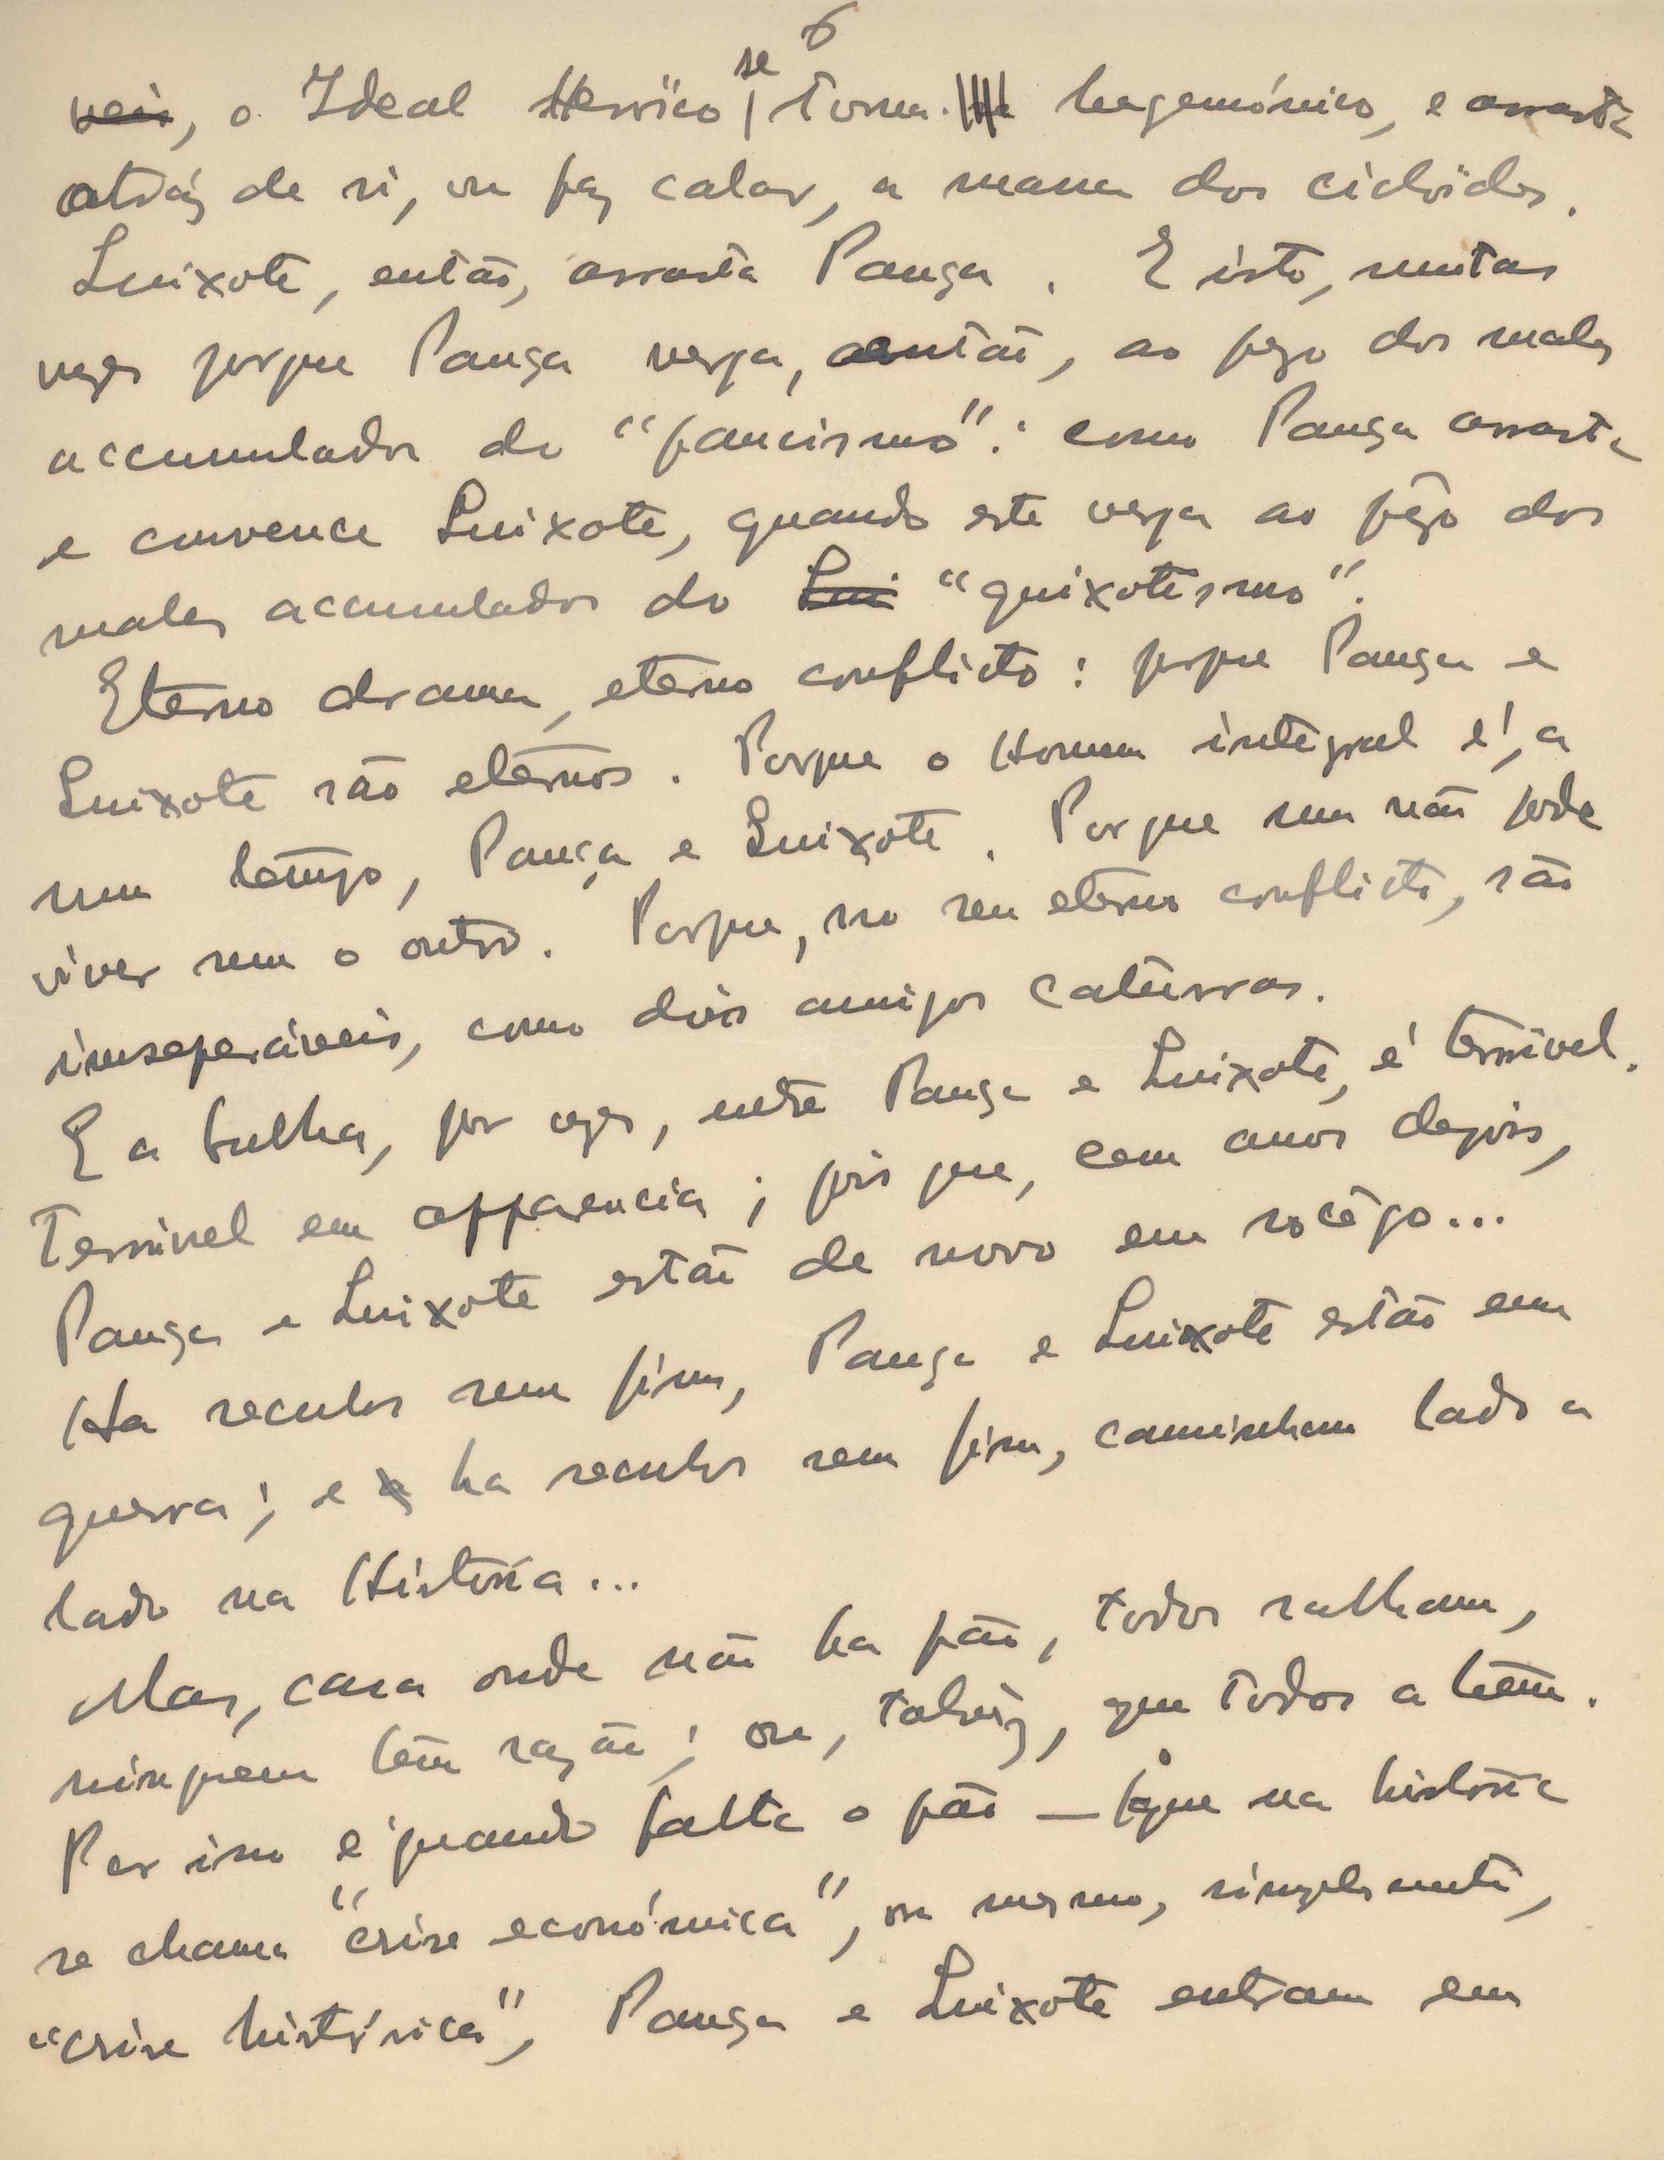 6
veis, o Ideal Heroico se torna hegemónico, e arrasta
atráz de si, ou faz calar, a massa dos cicloides.
Quixote, então, arrasta Pança. E isto, muitas
vezes porque Pança verga, então, ao pezo dos males
accumulados do "pancismo": como Pança arrasta
e convence Quixote, quando este verga ao pêzo dos
males accumulados do Qui "quixotismo".
Eterno drama, eterno conflicto: porque Pança e
Quixote são eternos. Porque o Homem integral é, a
um tempo, Pança e Quixote. Porque um não pode
viver sem o outro. Porque, no seu eterno conflicto, são
inseparáveis, como dois amigos caturras.
E a bulha, por vezes, entre Pança e Quixote, é terrivel.
Terrivel em apparencia; pois que, cem anos depois,
Pança e Quixote estão de novo em socêgo...
Ha seculos sem fim, Pança e Quixote estão em
guerra; e ha seculos sem fim, caminham lado a
lado na História...
Mas, casa onde não ha pão, todos ralham,
ninguem tem razão; ou, talvez, que todos a têem.
Por isso é quando falta o pão — o que na história
se chama "crise económica", ou mesmo, simplesmente,
"crise histórica", Pança e Quixote entram em